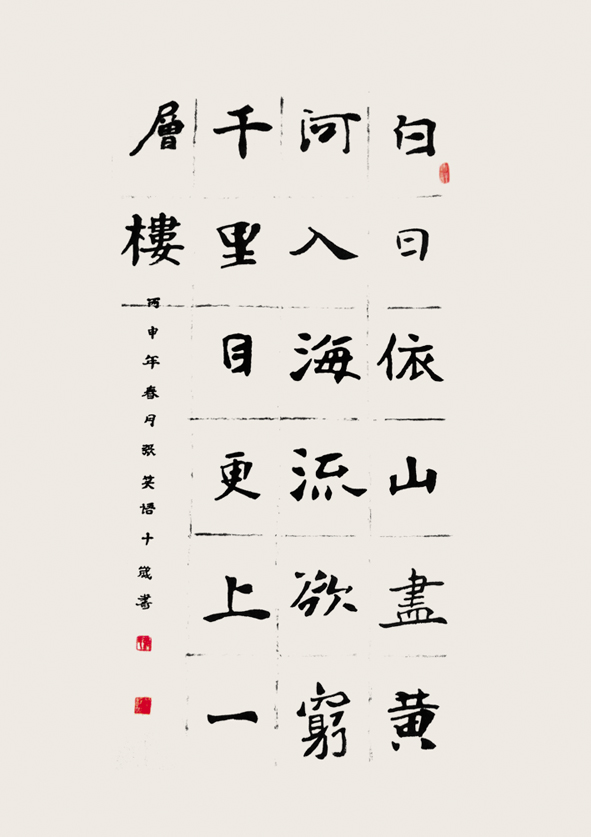 白日依山盡黃
河入海流欲窮
千里目更上一
層樓
丙申年春月張笑語十歲書